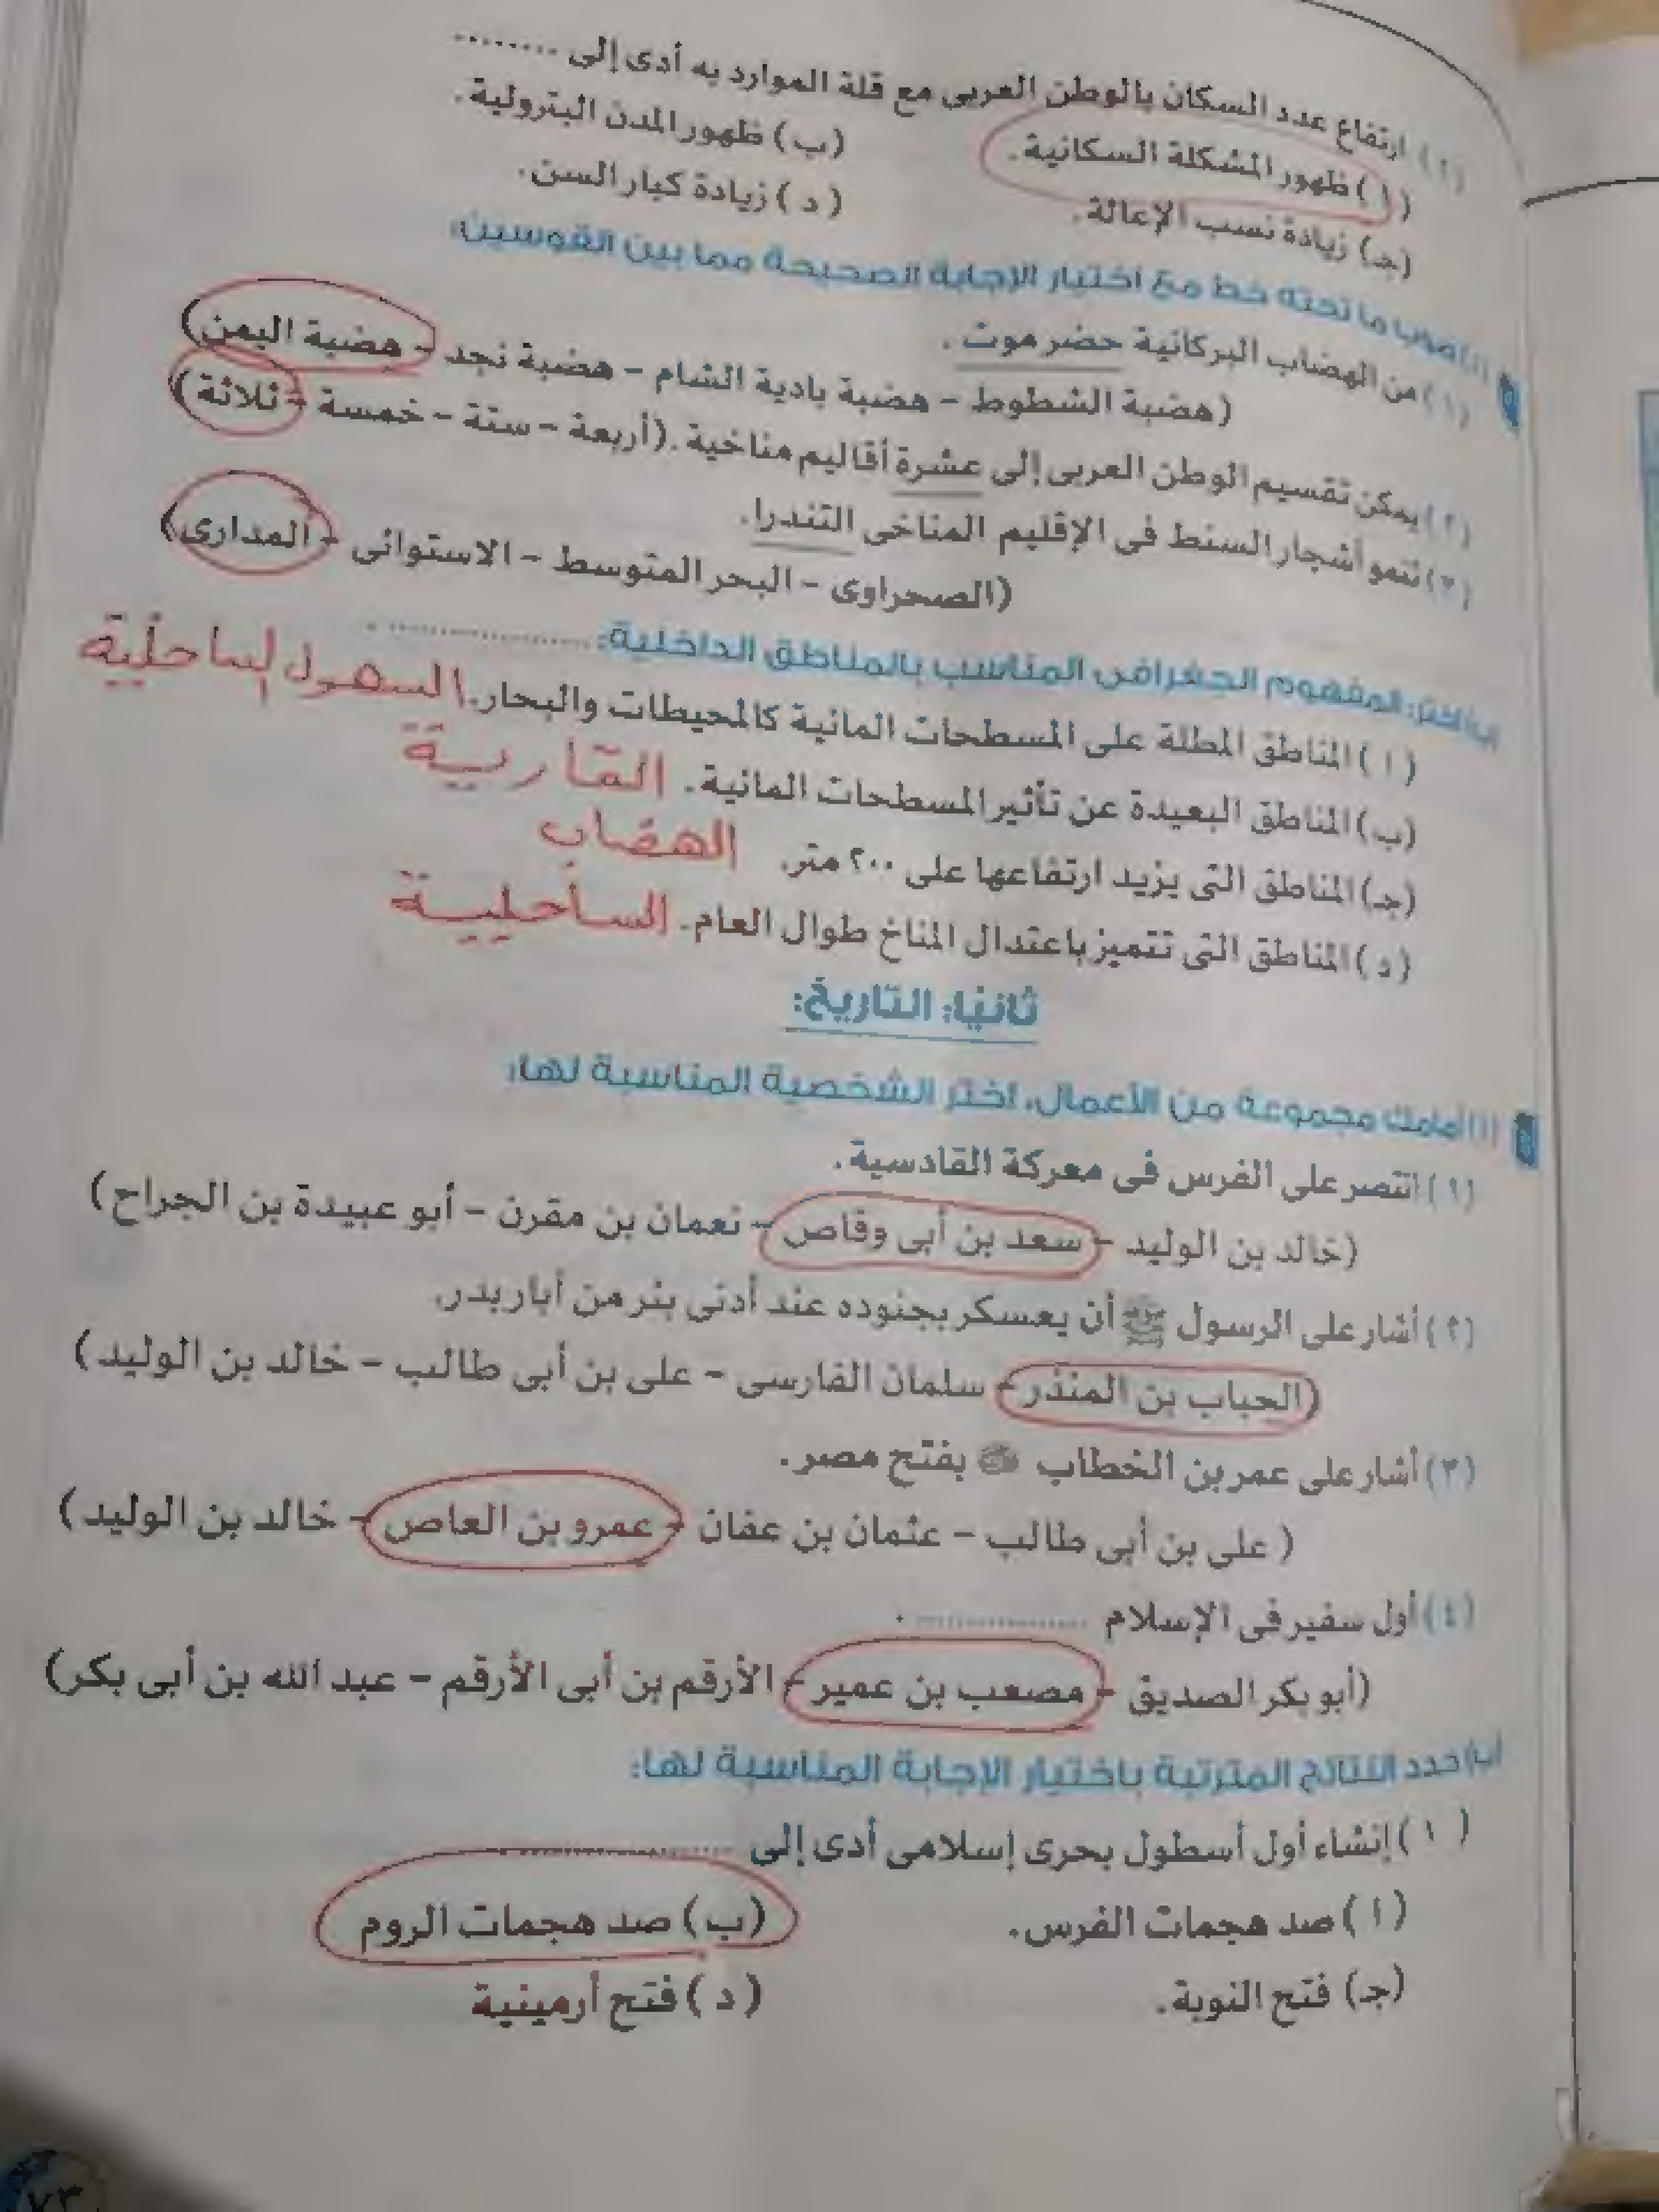 (٢) ارتفاع عدد السكان بالوطن العربى مع قلة الموارد به أدى إلى ........
(ا) ظهور المشكلة السكانية. (ب) ظهور المدن البترولية.
(جـ) زيادة نسب الإعالة. (د) زيادة كبار السن.
(ا) صوب ما تحته خط مع اختيار الإجابة الصحيحة مما بين القوسين:
(١) من الهضاب البركانية حضر موت.
(هضبة الشطوط - هضبة بادية الشام - هضبة نجد - هضبة اليمن)
(٢) يمكن تقسيم الوطن العربى إلى عشرة أقاليم مناخية. (أربعة - ستة - خمسة - ثلاثة)
(٣) تنمو أشجار السنط فى الإقليم المناخى التندرا.
(الصحراوى - البحر المتوسط - الاستوائى - المدارى)
(ب) اختر: المفهوم الجغرافى المناسب بالمناطق الداخلية: ....................
(ا) المناطق المطلة على المسطحات المائية كالمحيطات والبحار. السهول الساحلية
(ب) المناطق البعيدة عن تأثير المسطحات المائية. القارية
(جـ) المناطق التى يزيد ارتفاعها على ٢٠٠ متر. الهضاب
(د) المناطق التى تتميز باعتدال المناخ طوال العام. الساحلية
ثانيًا: التاريخ:
(ا) أمامك مجموعة من الأعمال، اختر الشخصية المناسبة لها:
(١) انتصر على الفرس فى معركة القادسية.
(خالد بن الوليد - سعد بن أبى وقاص - نعمان بن مقرن - أبو عبيدة بن الجراح)
(٢) أشار على الرسول ﷺ أن يعسكر بجنوده عند أدنى بئر من أبار بدر.
(الحباب بن المنذر - سلمان الفارسى - على بن أبى طالب - خالد بن الوليد)
(٣) أشار على عمر بن الخطاب بفتح مصر.
(على بن أبى طالب - عثمان بن عفان - عمرو بن العاص - خالد بن الوليد)
(٤) أول سفير فى الإسلام .................
(أبو بكر الصديق - مصعب بن عمير - الأرقم بن أبى الأرقم - عبد الله بن أبى بكر)
(ب) حدد النتائج المترتبة باختيار الإجابة المناسبة لها:
(١) إنشاء أول أسطول بحرى إسلامى أدى إلى ....................
(ا) صد هجمات الفرس. (ب) صد هجمات الروم
(جـ) فتح النوبة. (د) فتح أرمينية
٧٣